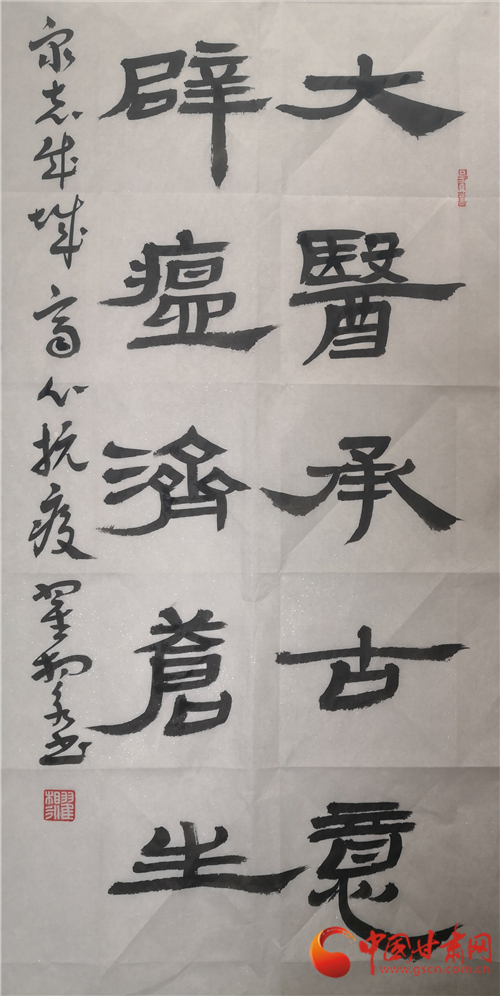 大醫承古意
辟瘟濟蒼生
众志成城齊心抗疫 翟相永书
中国甘肃网
www.gscn.com.cn